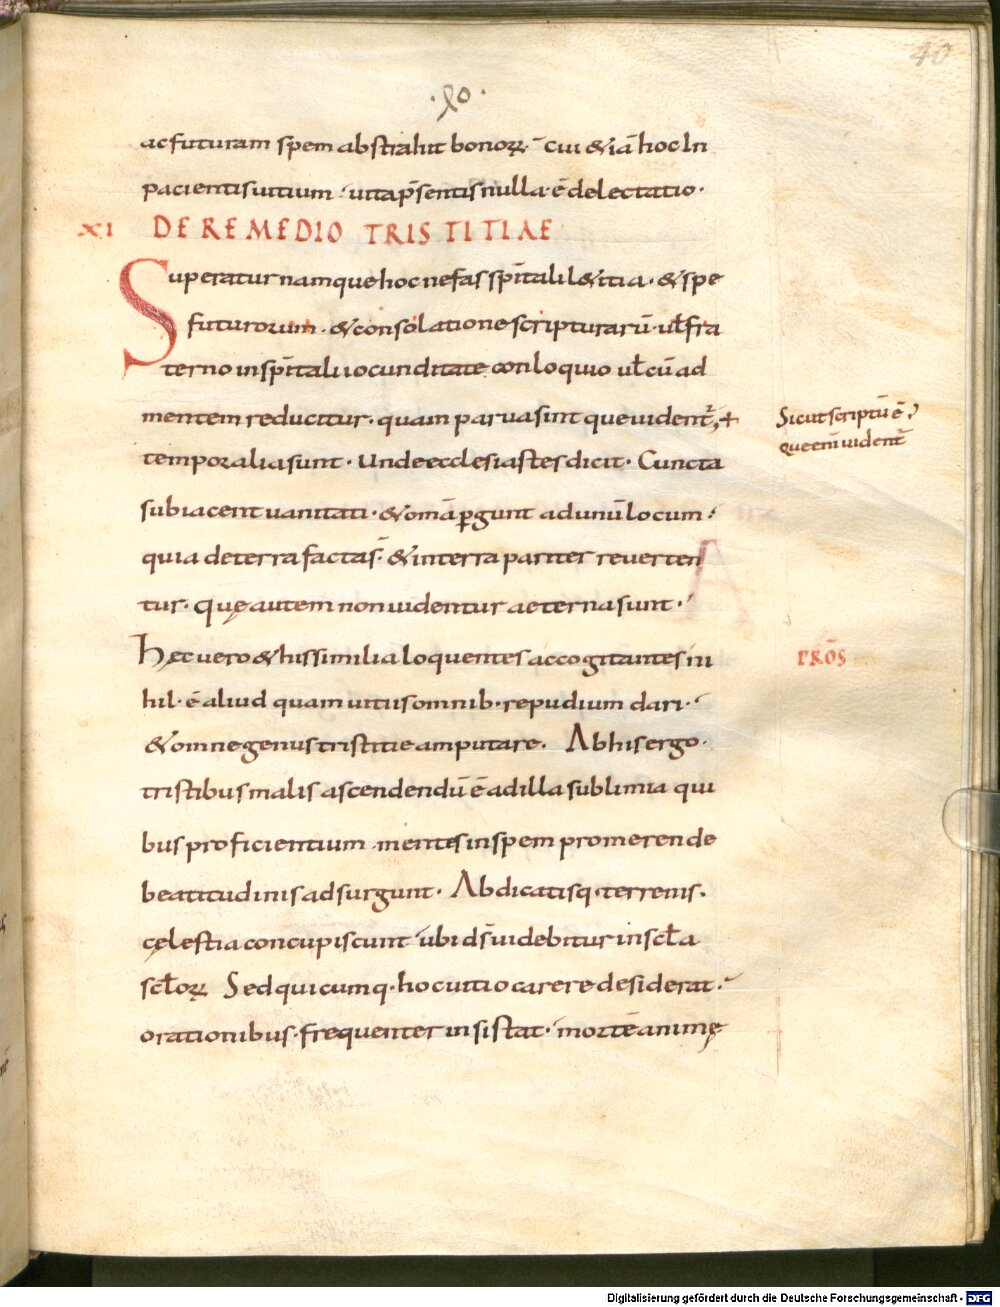 40
·xo·
ac futuram spem abstrahit bonoꝝ· cui & iā hoc In
pacientis uitium· uita p̄sentis nulla· ē delectatio·
XI DE REMEDIO TRISTITIAE
Superatur namque hoc nefas sp̄itali l&itia· & spe
futurorum· & consolatione scripturarū· ul̄ fra
terno in sp̄itali iocunditate conloquio ul̄ cū ad
mentem reducitur· quam parua sint que uident᷑, +
temporalia sunt· Unde ecclesiastes dicit· Cuncta
subiacent uanitati· & om̄a ꝑgunt ad unū locum·
quia de terra facta s̄· & in terra pariter reuerten
tur· quę autem non uidentur aeterna sunt·
Hęc uero & his similia loquentes ac cogitantes ni
hil· ē aliud quam uitiis omnib· repudium dari·
& omne genus tristitie amputare. Ab his ergo·
tristibus malis ascendendū ē ad illa sublimia qui
bus proficientium mentes in spem promerende
beatitudinis adsurgunt. Abdicatisq· terrenis·
cęlestia concupiscunt ubi d̄s uidebitur in scl̄a
scl̄oꝝ Sed quicumq· hoc uitio carere desiderat·
orationibus· frequenter insistat· mortē animę
Sicut scriptū ē·
que enī uident᷑
Digitalisierung gefördert durch die Deutsche Forschungsgemeinschaft - DFG